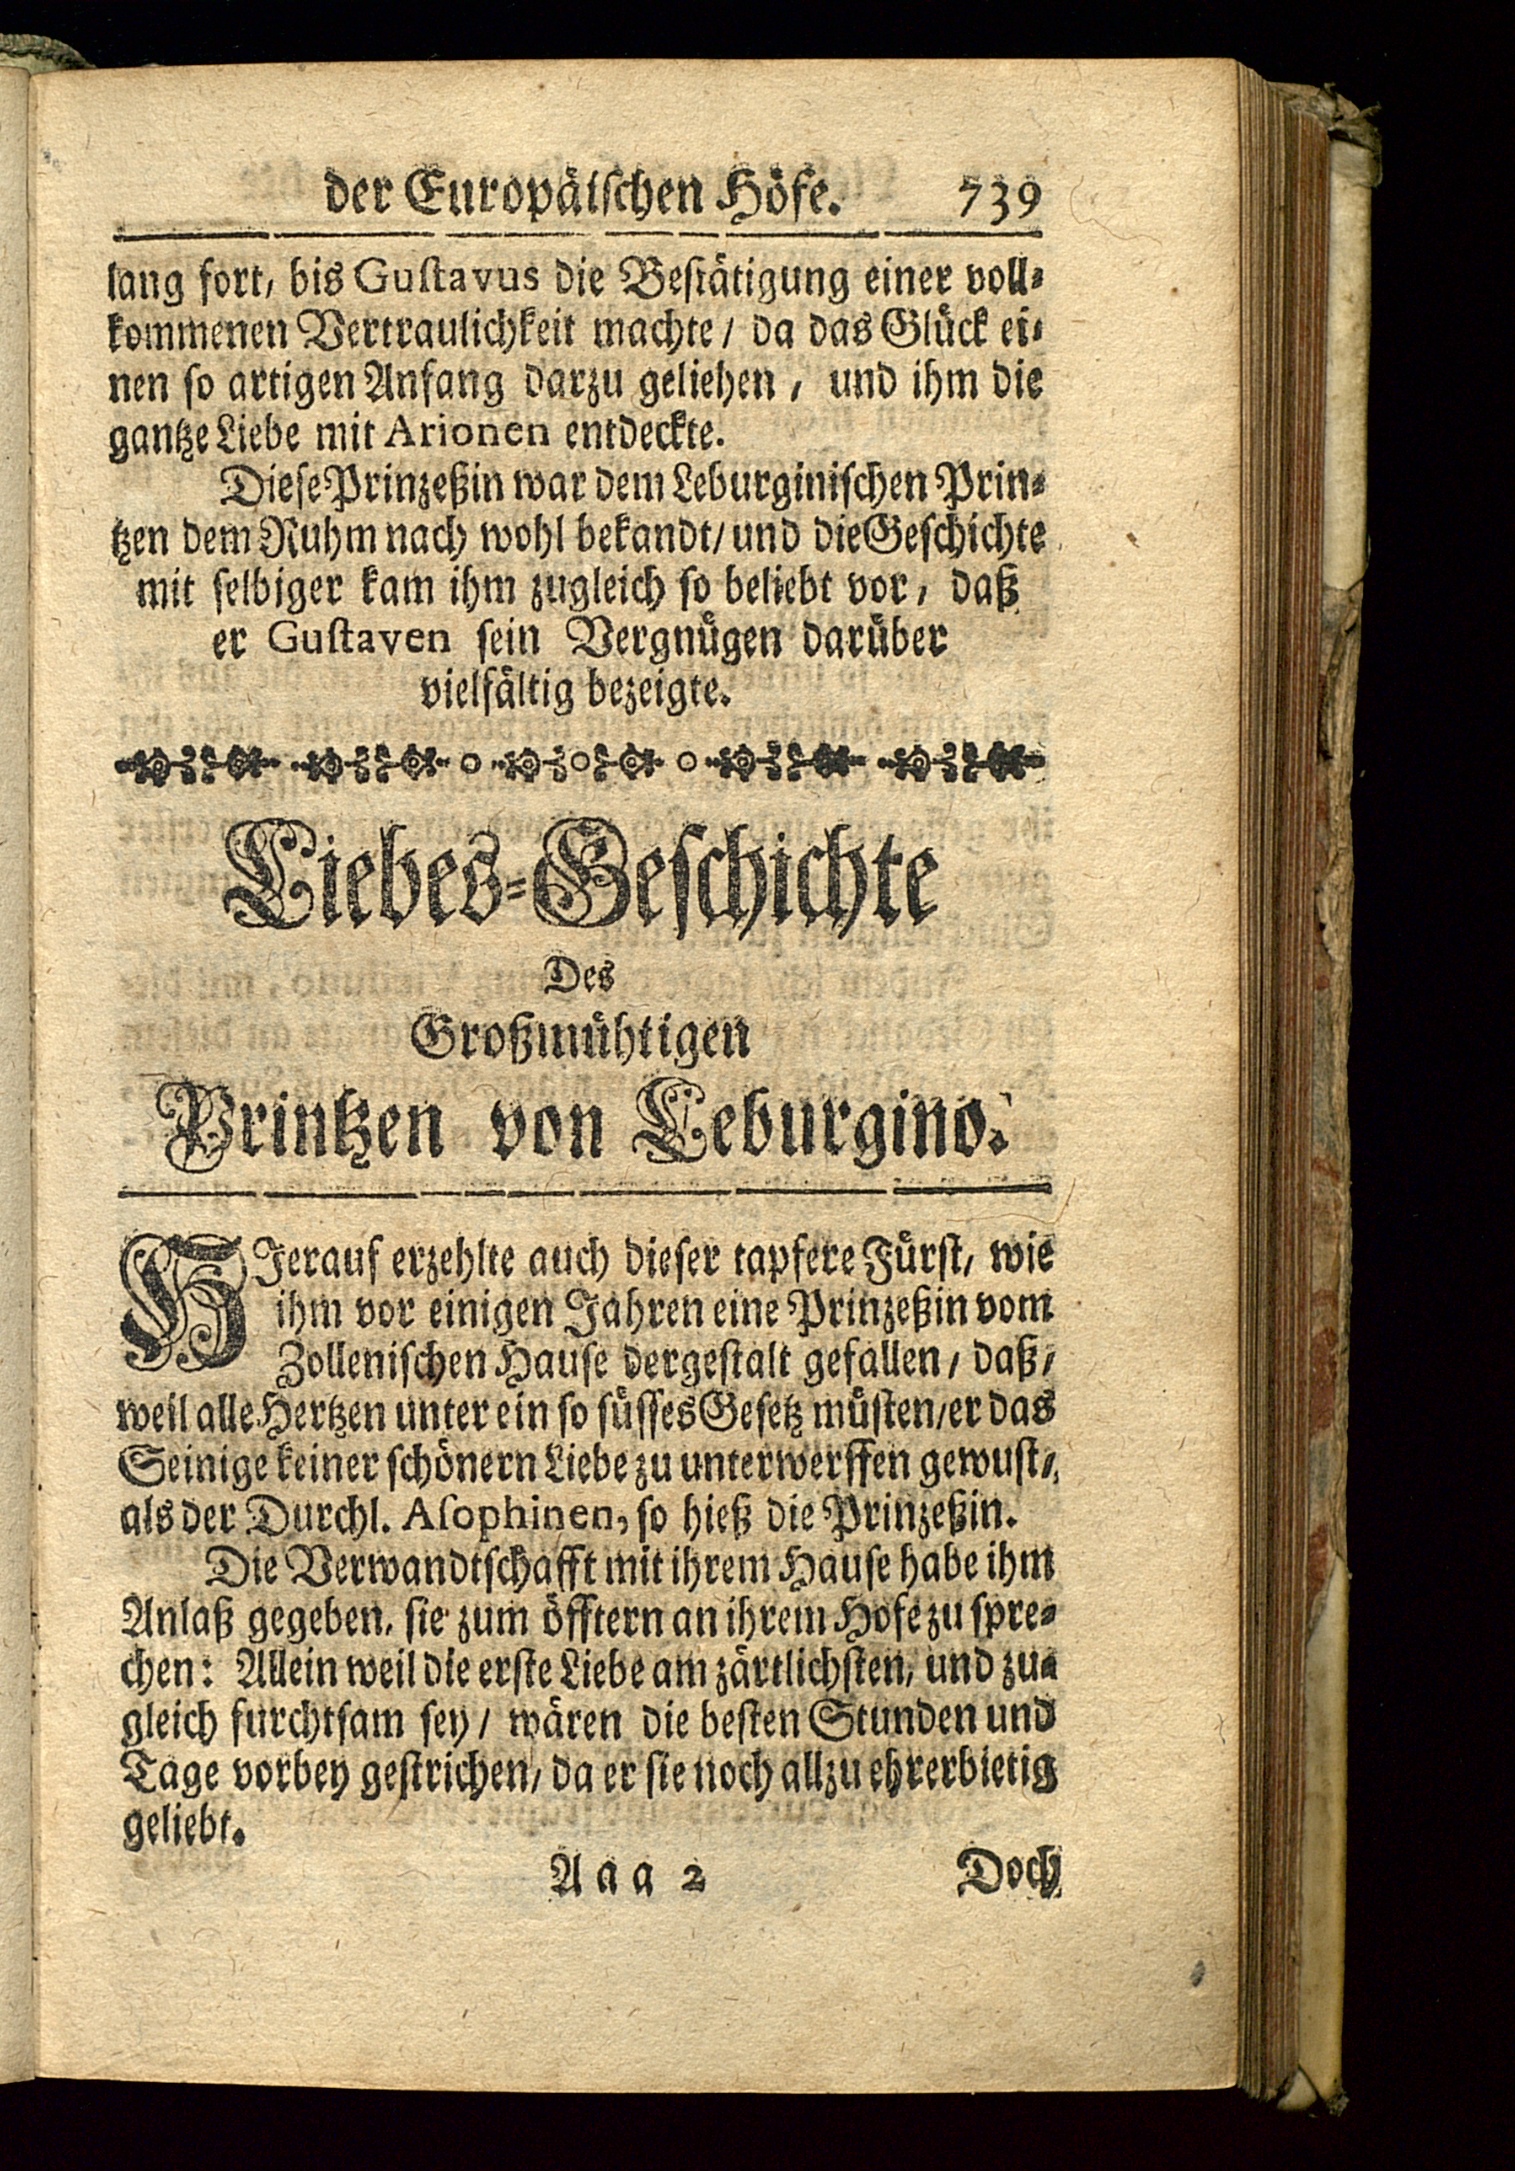 der Europäiſchen Höfe. 739
lang fort, bis Guſtavus die Beſtätigung einer voll⸗
kommenen Vertraulichkeit machte / da das Glück ei⸗
nen ſo artigen Anfang darzu geliehen , und ihm die
gantze Liebe mit Arionen entdeckte.
Dieſe Prinzeßin war dem Leburginiſchen Prin⸗
tzen dem Ruhm nach wohl bekandt/ und die Geſchichte
mit ſelbiger kam ihm zugleich ſo beliebt vor, daß
er Guſtaven ſein Vergnuͤgen daruͤber
vielfältig bezeigte.
Liebes⸗Geſchichte
Des
Großmühtigen
Printzen von Leburgino.
HIerauf erzehlte auch dieſer tapfere Fuͤrſt, wie
ihm vor einigen Jahren eine Prinzeßin vom
Zolleniſchen Hauſe dergeſtalt gefallen / daß,
weil alle Hertzen unter ein ſo ſuͤſſes Geſetz muͤſten/er das
Seinige keiner ſchönern Liebe zu unterwerffen gewuſt/
als der Durchl. Aſophinen, ſo hieß die Prinzeßin.
Die Verwandtſchafft mit ihrem Hauſe habe ihm
Anlaß gegeben, ſie zum öfftern an ihrem Hofe zu ſpre⸗
chen: Allein weil die erſte Liebe am zärtlichſten, und zu⸗
gleich furchtſam ſey / wären die beſten Stunden und
Tage vorbey geſtrichen, da er ſie noch allzu ehrerbietig
geliebt.
Aaa 2 Doch